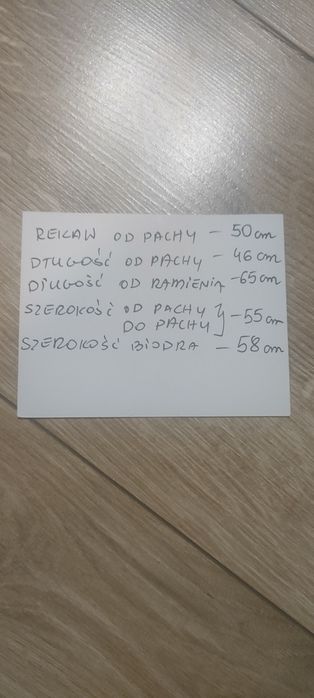 RĘKAW OD PACHY – 50 cm
DŁUGOŚĆ OD PACHY – 46 cm
DŁUGOŚĆ OD RAMIENIA – 65 cm
SZEROKOŚĆ OD PACHY
DO PACHY } – 55 cm
SZEROKOŚĆ BIODRA – 58 cm